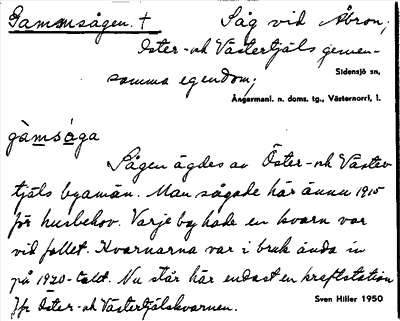 Gammsågen. † Såg vid Åbron;
Öster- och Västertjäls gemen-
samma egendom;
Sidensjö sn,
Ångermanl. n. doms. tg., Västernorrl. l.
gàmsòga
Sågen ägdes av Öster- och Väster
tjäls byamän. Man sågade här ännu 1915
för husbehov. Varje by hade en kvarn var
vid fallet. Kvarnarna var i bruk ända in
på 1920-talet. Nu står här endast en kraftstation
Jfr Öster- och Västertjälskvarnen.
Sven Hiller 1950